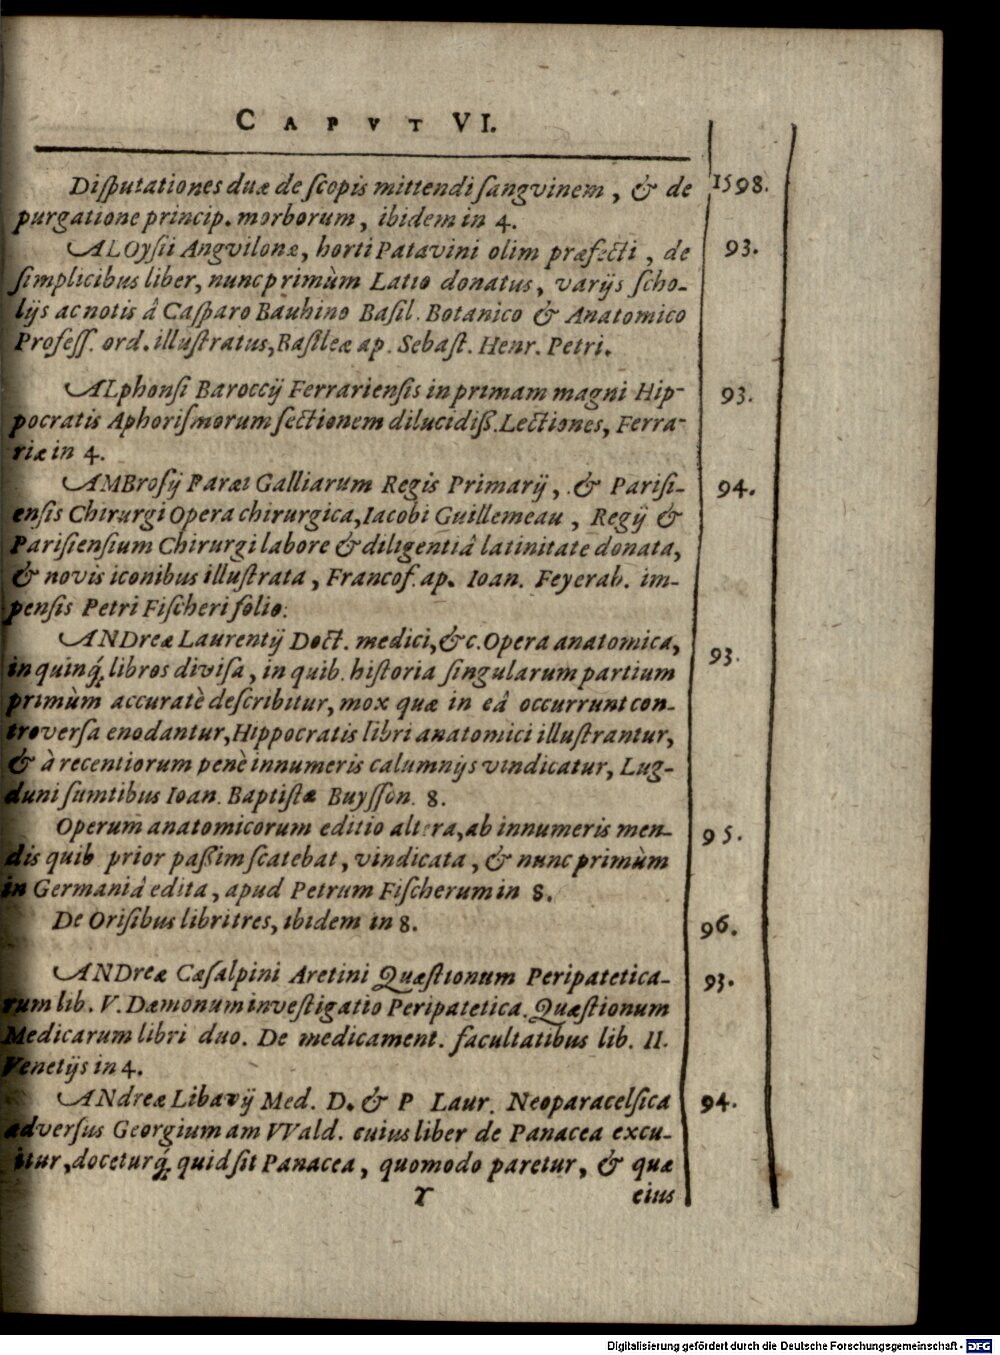 CAPVT VI.
Disputationes duæ de scopis mittendi sangvinem, & de 1598.
purgatione princip. morborum, ibidem in 4.
ALOysii Angvilonæ, horti Patavini olim præfecti, de 93.
simplicibus liber, nunc primùm Latio donatus, varijs scho-
lijs ac notis â Casparo Bauhino Basil. Botanico & Anatomico
Profess. ord. illustratus, Basileæ ap. Sebast. Henr. Petri.
ALphonsi Baroccij Ferrariensis in primam magni Hip- 93.
pocratis Aphorismorum sectionem dilucidiss. Lectiones, Ferra-
riæ in 4.
AMBrosij Paræi Galliarum Regis Primarij, & Parisi- 94.
ensis Chirurgi Opera chirurgica, Iacobi Guillemeau, Regij &
Parisiensium Chirurgi labore & diligentiâ latinitate donata,
& novis iconibus illustrata, Francof. ap. Ioan. Feyerab. im-
pensis Petri Fischeri folio.
ANDreæ Laurentij Doct. medici, &c. Opera anatomica, 93.
in quinq́; libros divisa, in quib. historia singularum partium
primùm accuratè describitur, mox quæ in eâ occurrunt con-
troversa enodantur, Hippocratis libri anatomici illustrantur,
& à recentiorum penè innumeris calumnijs vindicatur, Lug-
duni sumtibus Ioan. Baptistæ Buysson. 8.
Operum anatomicorum editio altera, ab innumeris men- 95.
dis quib prior passim scatebat, vindicata, & nunc primùm
in Germaniâ edita, apud Petrum Fischerum in 8.
De Crisibus libri tres, ibidem in 8. 96.
ANDreæ Cæsalpini Aretini Quæstionum Peripatetica- 93.
rum lib. V. Dæmonum investigatio Peripatetica. Quæstionum
Medicarum libri duo. De medicament. facultatibus lib. II.
Venetijs in 4.
ANdreæ Libavij Med. D. & P Laur. Neoparacelsica 94.
adversus Georgium am VVald. cuius liber de Panacea excu-
itur, doceturq́; quid sit Panacea, quomodo paretur, & quæ
Y eius
Digitalisierung gefördert durch die Deutsche Forschungsgemeinschaft - DFG